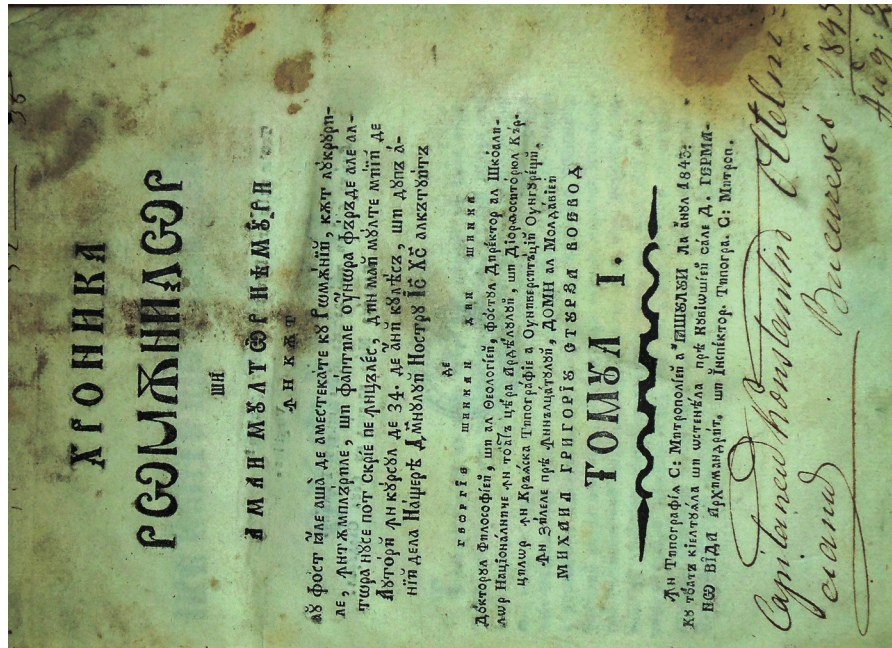 ХРОНИКА
РѠМѪНИЛѠР
ШЙ
А МАИ МꙊЛТѠР НѢМꙊРИ
ꙞН КѪТ
аꙋ фост еле аша де аместекате кꙋ Рѡмѫнїй, кѫт лꙋкрꙋри-
ле, ꙟнтѫмплѫриле, ши фаптиле ꙋнѡра фѫрѫде але ал-
тѡра нꙋсе пот скріе пе ꙟнцѫлес, дин май мꙋлте мїй де
Аꙋторй ꙟн кꙋрсꙋл де 34. де ани кꙋлѣсъ, ши дꙋпъ а-
нїй дела Нащерѣ Дмнꙋлꙋй Нострꙋ Іс҃ Хс҃ алкътꙋитъ
де
ГЕОРГІЕ ШИНКАИ ДИН ШИНКА
Докторꙋл Философїей, ши ал Ѳеологїей, фостꙋл Директор ал Шкоали-
лѡр Націоналниче ꙟн тоатъ цѣра Ардѣлꙋлꙋй, ши Діорѳоситорюл Кѫр-
цилѡр ꙟн Крѣаска Типографіе а Оуниверситъцїй Оунгꙋрещй.
Ꙟн Зилеле прѣ Ꙟнълцатꙋлꙋй, ДОМН ал Молдавїей
МИХАИЛ ГРИГОРІꙊ СТꙊРЗА ВОЕВОД
ТОМꙊЛ I.
Ꙟн Типографїа С: Митрополїей а ІАШꙊЛꙊЙ Ла анꙋл 1843:
Кꙋ тоатъ кіелтꙋала ши ѡстенѣла прѣ Кꙋвіѡшїей сале Д. ГЕРМА-
НѠ ВІДА Архимандрит, ши Інспектор. Типогра. С: Митроп.
Capitanew Konstantin
Bucuresci 1845
Aug: